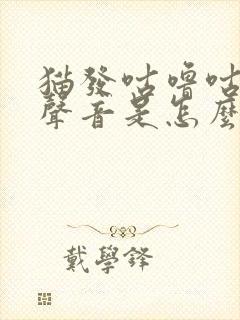 猫發咕嚕咕
聲音是怎麼
戴學鋒